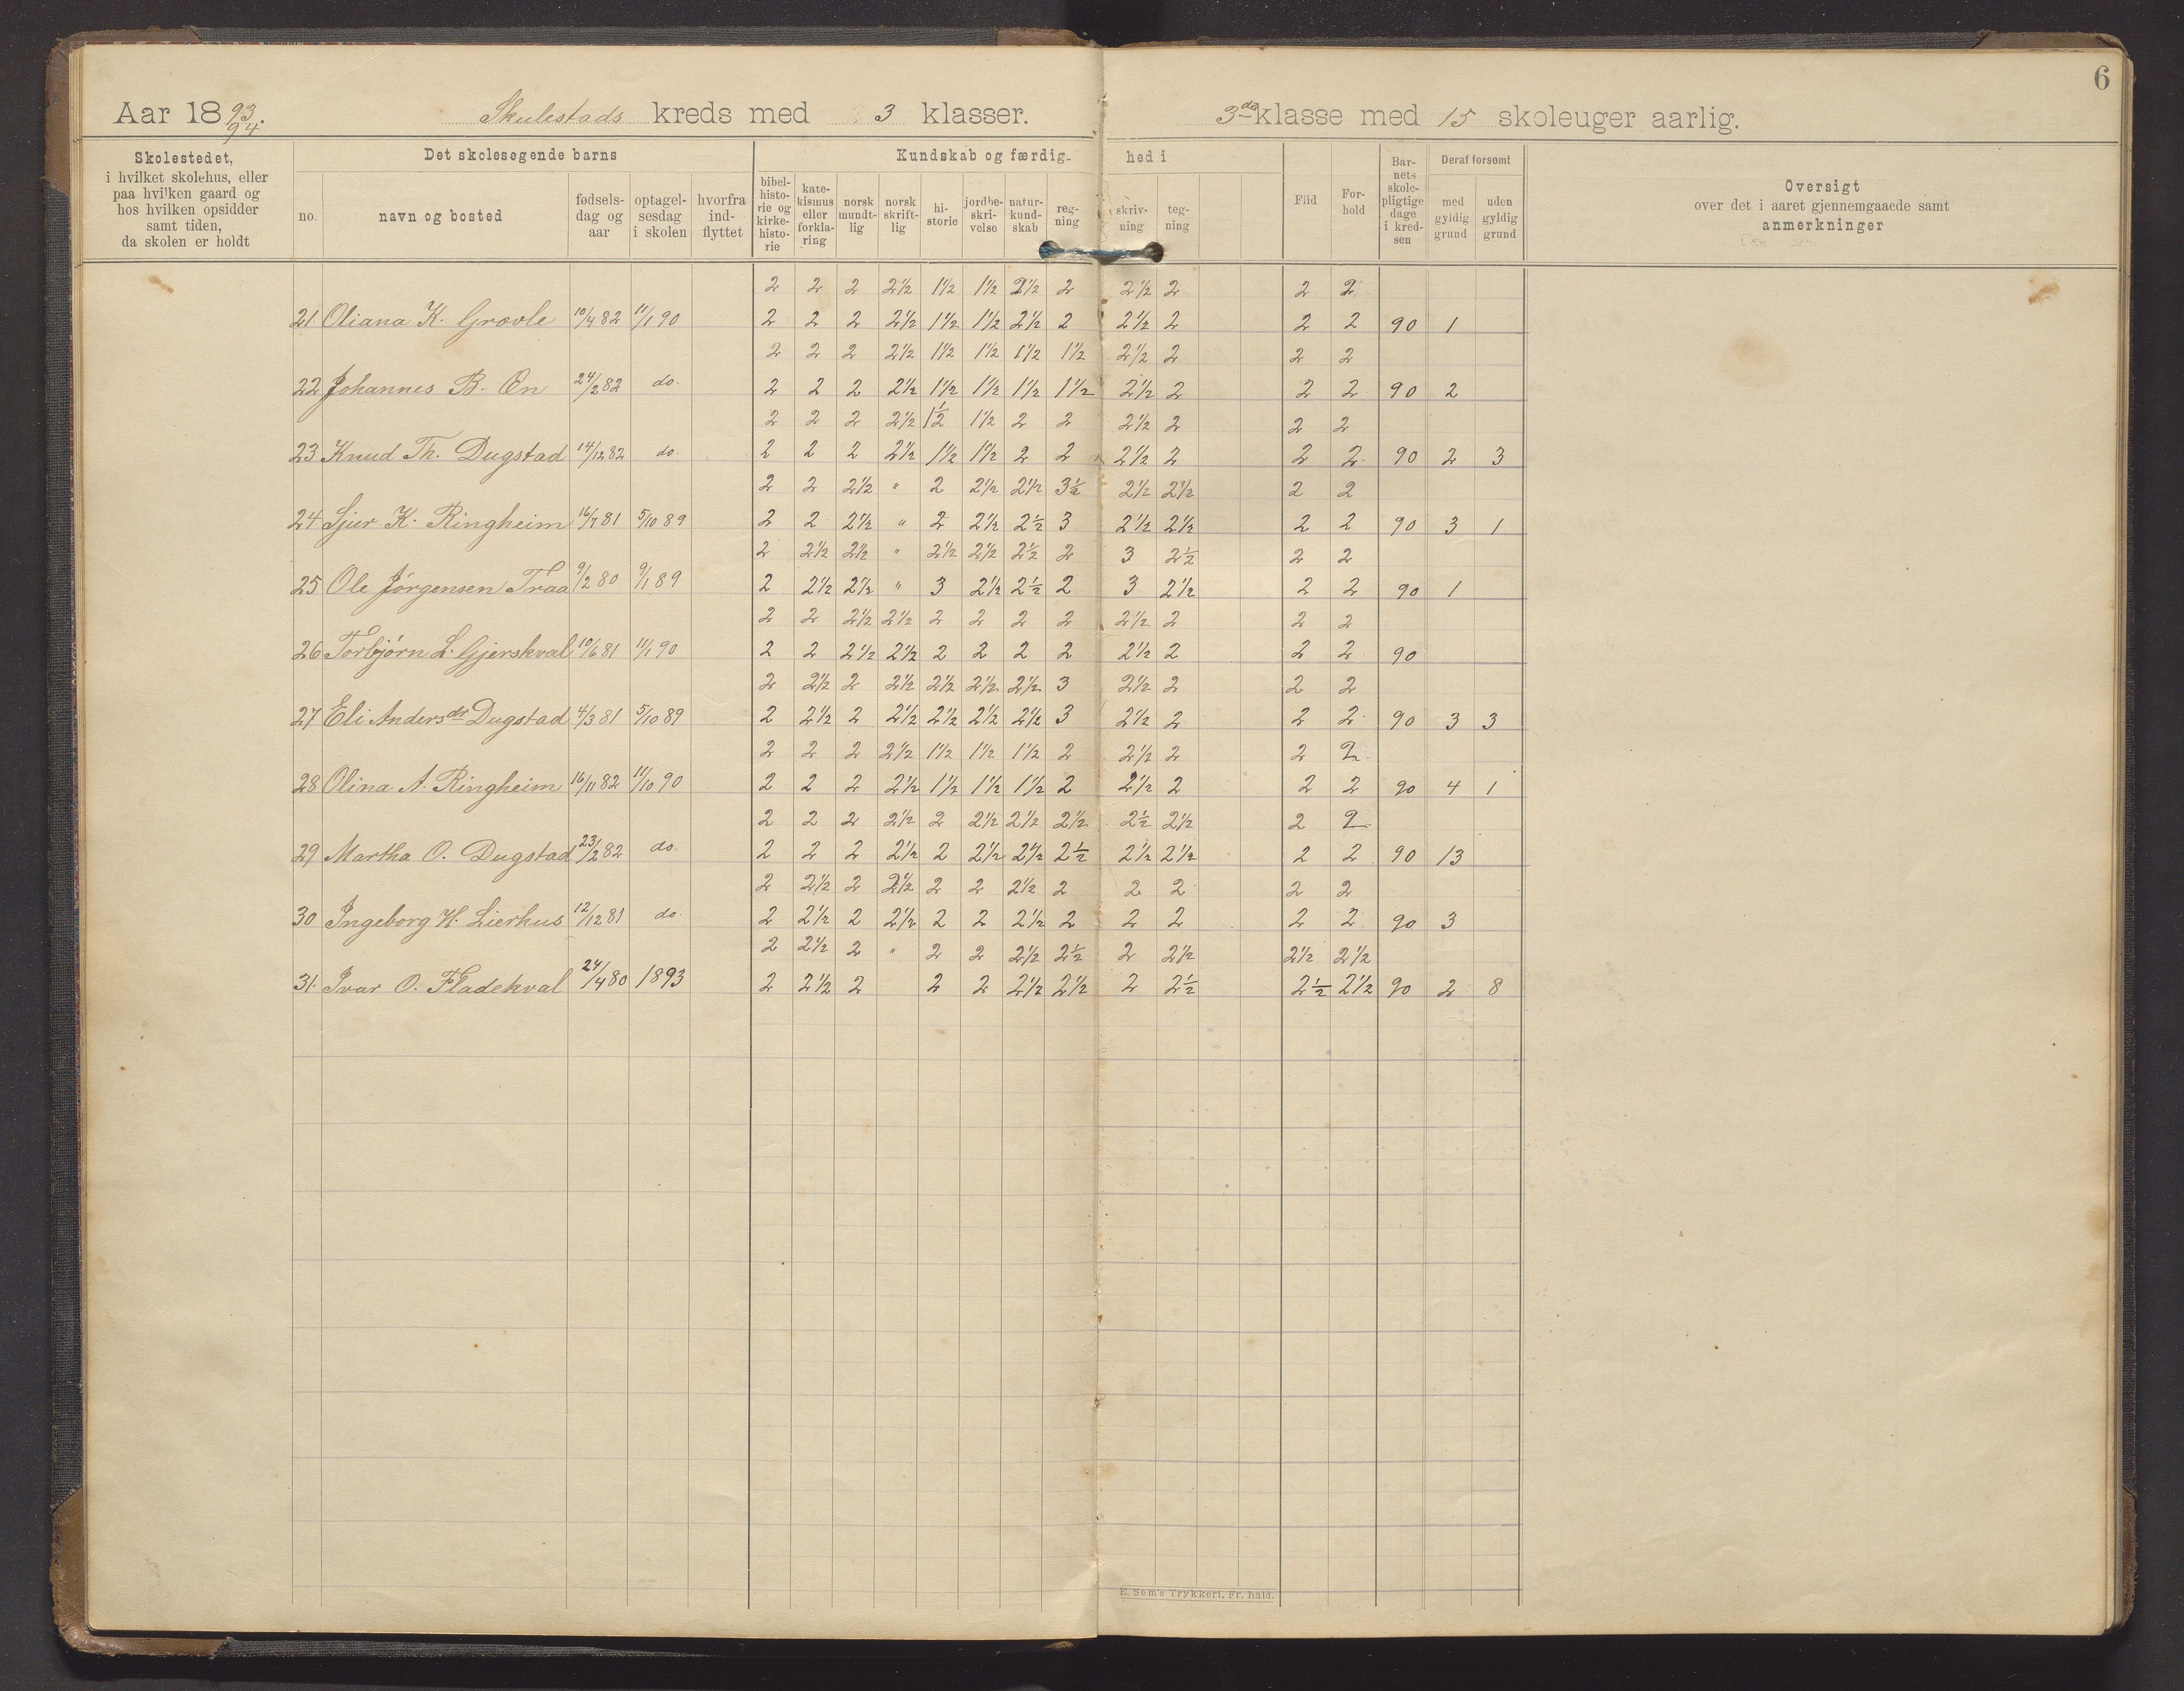 6
Aar 1893/94. Skulestads kreds med 3 klasser. 3die klasse med 15 skoleuger aarlig.
Skolestedet, i hvilket skolehus, eller paa hvilken gaard og hos hvilken opsidder samt tiden, da skolen er holdt
Det skolesøgende barns
no. navn og bosted fødsels-dag og aar optagel-sesdag i skolen hvorfra ind-flyttet
Kundskab og færdig- hed i
bibel-histo-rie og kirke-histo-rie kate-kismus eller forkla-ring norsk mundt-lig norsk skrift-lig hi-storie jordbe-skri-velse natur-kund-skab reg-ning skriv-ning teg-ning
Flid For-hold Bar-nets skole-pligtige dage i kred-sen
Deraf forsømt
med gyldig grund uden gyldig grund
Oversigt
over det i aaret gjennemgaaede samt
anmerkninger
2 2 2 2½ 1½ 1½ 2½ 2 2½ 2 2 2
21 Oliana K. Grøvle 10/4 82 11/1 90 2 2 2 2½ 1½ 1½ 2½ 2 2½ 2 2 2 90 1
2 2 2 2½ 1½ 1½ 1½ 1½ 2½ 2 2 2
22 Johannes B. Øn 24/2 82 do. 2 2 2 2½ 1½ 1½ 1½ 1½ 2½ 2 2 2 90 2
2 2 2 2½ 1½ 1½ 2 2 2½ 2 2 2
23 Knud Th. Dugstad 14/12 82 do. 2 2 2 2½ 1½ 1½ 2 2 2½ 2 2 2 90 2 3
2 2 2½ " 2 2½ 2½ 3½ 2½ 2½ 2 2
24 Sjur K. Ringheim 16/7 81 5/10 89 2 2 2½ " 2 2½ 2½ 3 2½ 2½ 2 2 90 3 1
2 2½ 2½ " 2½ 2½ 2½ 2 3 2½ 2 2
25 Ole Jørgensen Traa 9/2 80 9/1 89 2 2½ 2½ " 3 2½ 2½ 2 3 2½ 2 2 90 1
2 2 2½ 2½ 2 2 2 2 2½ 2 2 2
26 Torbjørn L. Gjerskval 10/6 81 11/1 90 2 2 2½ 2½ 2 2 2 2 2½ 2 2 2 90
2 2½ 2 2½ 2½ 2½ 2½ 3 2½ 2 2 2
27 Eli Andersdr Dugstad 4/3 81 5/10 89 2 2½ 2 2½ 2½ 2½ 2½ 3 2½ 2 2 2 90 3 3
2 2 2 2½ 1½ 1½ 1½ 2 2½ 2 2 2
28 Olina A. Ringheim 16/11 82 11/10 90 2 2 2 2½ 1½ 1½ 1½ 2 2½ 2 2 2 90 4 1
2 2 2 2½ 2 2½ 2½ 2½ 2½ 2½ 2 2
29 Martha O. Dugstad 23/2 82 do. 2 2 2 2½ 2 2½ 2½ 2½ 2½ 2½ 2 2 90 13
2 2½ 2 2½ 2 2 2½ 2 2 2 2 2
30 Ingeborg H. Lierhus 12/12 81 do. 2 2½ 2 2½ 2 2 2½ 2 2 2 2 2 90 3
2 2½ 2 " 2 2 2½ 2½ 2 2½ 2½ 2½
31. Ivar O. Fladekval 24/4 80 1893 2 2½ 2 2 2 2½ 2½ 2 2½ 2½ 2½ 90 2 8
E. Sem's Trykkeri, Fr. hald.